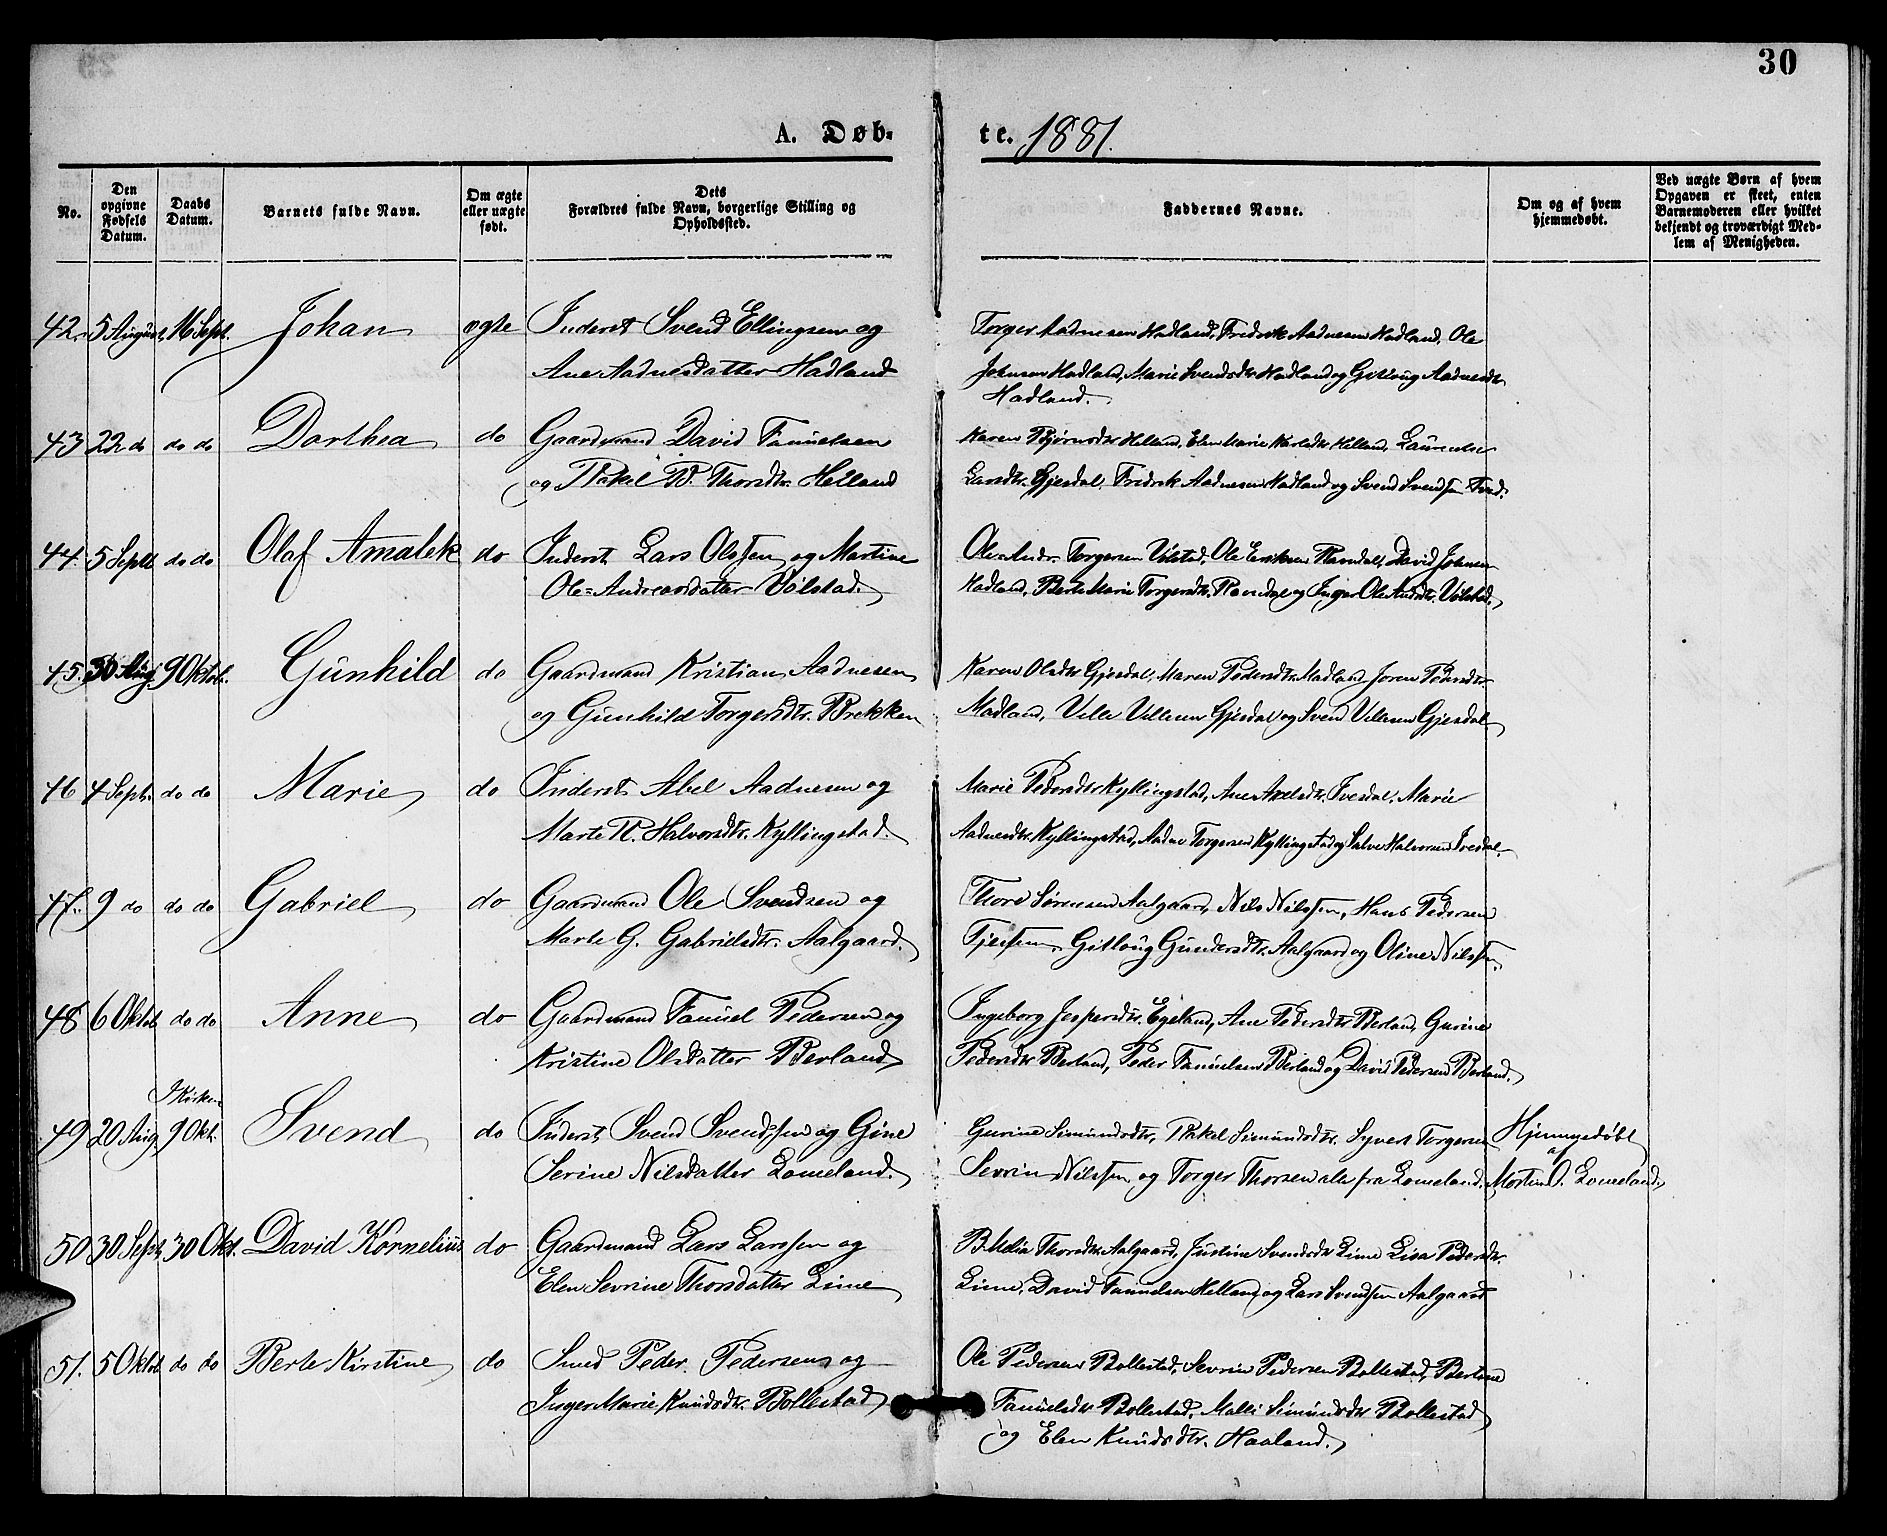 30
A. Døb-
te. 1881.
No.
Den opgivne Fødsels Datum.
Daabs Datum.
Barnets fulde Navn.
Om ægte eller uægte født.
Dets Forældres fulde Navn, borgerlige Stilling og Opholdssted.
Faddernes Navne.
Om og af hvem hjemmedøbt.
Ved uægte Børn af hvem Opgaven er skeet, enten Barnemoderen eller hvilket bekjendt og troværdigt Medlem af Menigheden.
42. 5 August 16 Sept. Johan ægte Inderst Svend Ellingsen og
Ane Aadnesdatter Hadland
Torger Aadnesen Hadland, Fredrik Aadnesen Hadland, Ole
Johnsen Hadland, Marie Svendsdtr. Hadland og Gitloug Aadnesdtr.
Hadland.
43 22 do do do Dorthea do Gaardmand David Tanuelsen
og Rakel B. Thorsdtr. Helland
Karen Bjørnsdtr Helland, Elen Marie Karlsdtr Helland, Laurentse
Larsdtr. Gjesdal, Fredrik Aadnesen Hadland og Svend Svendsen
44. 5 Septb do do Olaf Amalek do Inderst Lars Olssen og Martine
Ole=Andreasdatter Vølstad.
Ole Andr. Torgersen Vølstad, Ole Eriksen Ravndal, David Johnsen
Hadland, Berte Marie Torgersdtr. Ravndal og Inger Ole Andrsdtr. Vølstad.
45. 30 Aug. 9 Oktob. Gunhild do Gaardmand Kristian Aadnesen
og Gunhild Torgersdtr. Brekken
Karen Olsdtr Gjesdal, Maren Pedersdtr Madland, Joren Pedersdtr.
Madland, Velle Vellesen Gjesdal og Svend Vellesen Gjesdal
46 4 Septb. do do Marie do Inderst Abel Aadnesen og
Marte R. Halvorsdtr. Kyllingstad.
Marie Pedersdtr Kyllingstad, Ane Axelsdtr. Ivesdal, Marie
Aadnesdtr. Kyllingstad, Aadne Torgersen Kyllingstad og Salve Halvorsen Ivesdal.
47. 9 do do do Gabriel do Gaardmand Ole Svendsen og
Marte G. Gabrielsdtr. Aalgaard.
Thore Sørensen Aalgaard, Nils Nilssen, Hans Pedersen
Gitloug Gundersdtr. Aalgaard og Oline Nilssen.
48 6 Oktob do do Anne do Gaardmand Tanuel Pedersen og
Kristine Olsdatter Berland
Ingeborg Jespersdtr. Egeland, Ane Pedersdtr Berland, Gurine
Pedersdtr Berland, Peder Tanuelsen Berland og David Pedersen Berland.
I Kirken
49 20 Aug 9 Okt. Svend do Inderst Svend Svendssen og Gine
Serine Nilsdatter Lomeland.
Gurine Simundsdtr, Rakel Simundsdtr. Syvert Torgersen
Sevrin Nilssen og Torger Thorsen alle fra Lomeland.
Hjemmedøbt
af
Morten O. Lomeland.
50 30 Septb 30 Okt. David Kornelius do Gaardmand Lars Larssen og
Elen Sevrine Thorsdatter Lime
B. Melia Thorsdtr Aalgaard, Justine Svendsdtr Lime Lisa Pedersdtr.
Lime, David Tanuelsen Helland og Lars Svendsen Aalgaard
51. 5 Oktob do do Berte Kirstine do Smed Peder Pedersen og
Inger Marie Knudsdtr. Bollestad
Ole Pedersen Bollestad, Sevrin Pedersen Bollestad, Bertine
Tanuelsdtr Bollestad, Malli Simundsdtr Bollestad
og Elen Knudsdtr. Haaland.